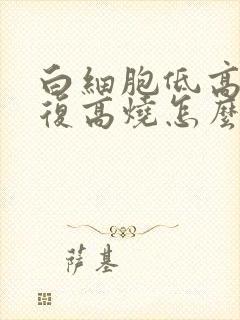 白細胞低高
復高燒怎麽
萨基